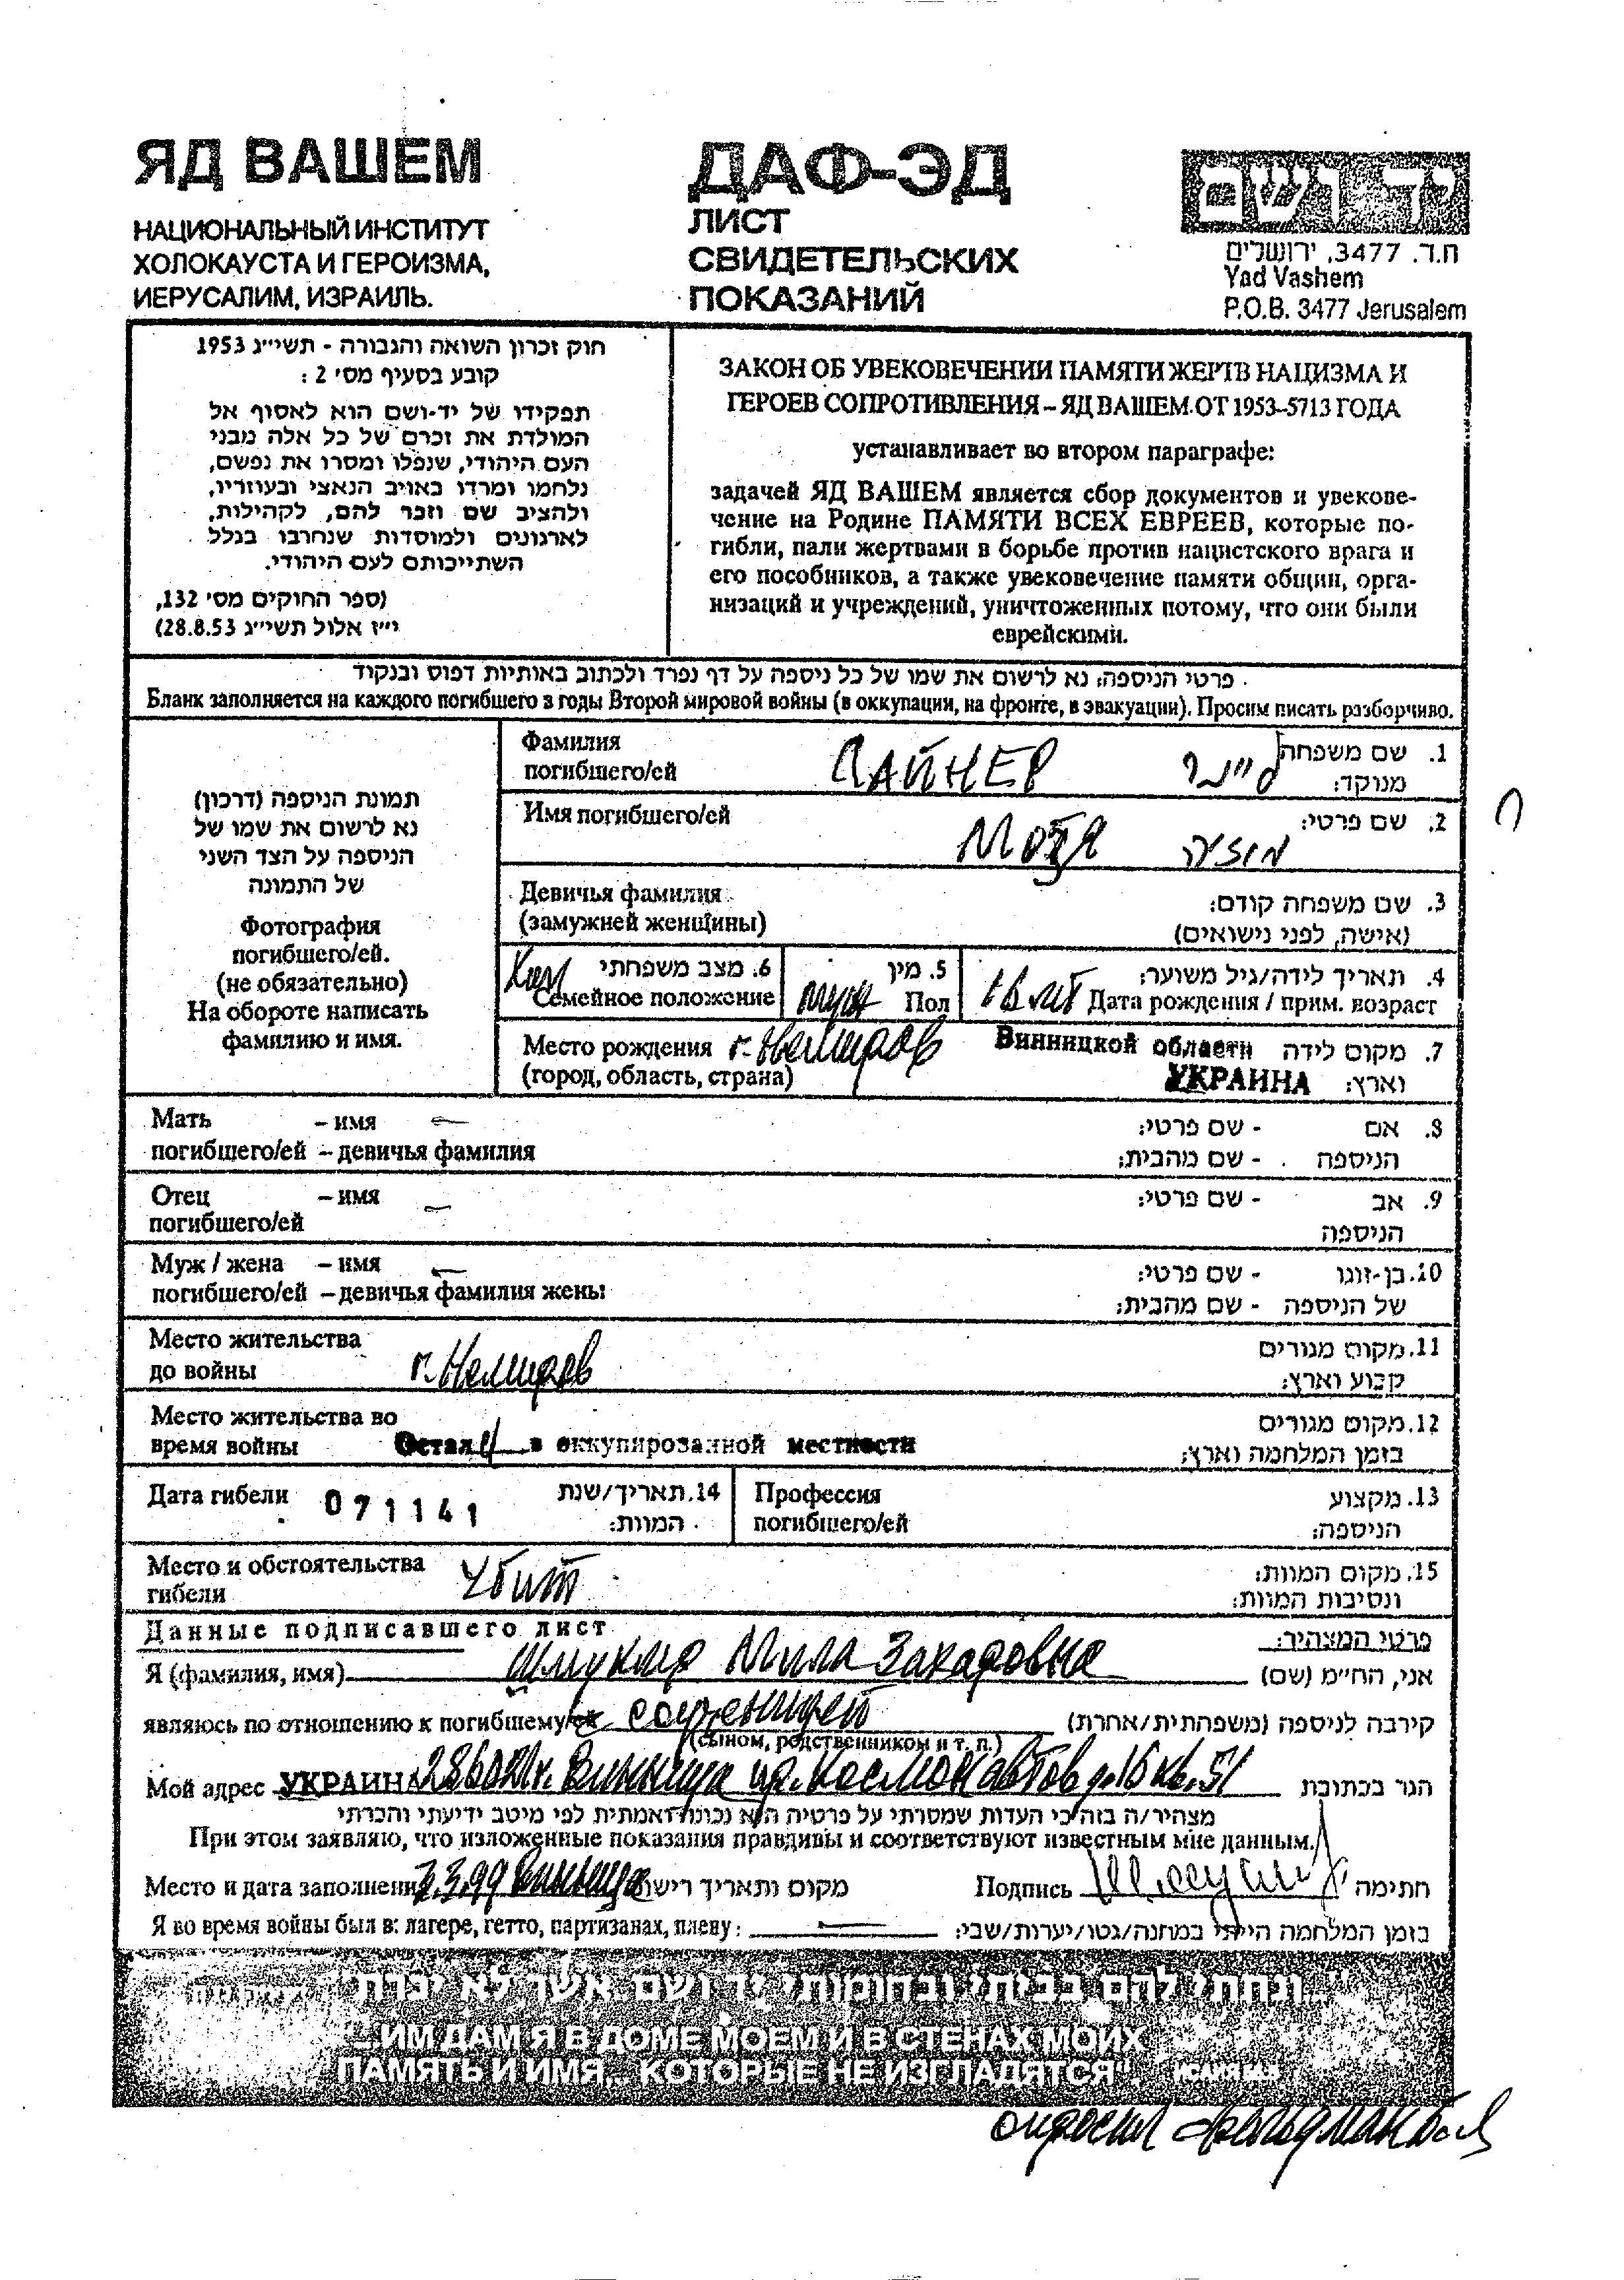 ЯД ВАШЕМ
НАЦИОНАЛЬНЫЙ ИНСТИТУТ
ХОЛОКАУСТА И ГЕРОИЗМА,
ИЕРУСАЛИМ, ИЗРАИЛЬ.
ДАФ-ЭД
ЛИСТ
СВИДЕТЕЛЬСКИХ
ПОКАЗАНИЙ
יד ושם
ת.ד. 3477, ירושלים
Yad Vashem
P.O.B. 3477 Jerusalem
חוק זכרון השואה והגבורה - תשי״ג 1953
קובע בסעיף מס׳ 2 :
תפקידו של יד-ושם הוא לאסוף אל
המולדת את זכרם של כל אלה מבני
העם היהודי, שנפלו ומסרו את נפשם,
נלחמו ומרדו באויב הנאצי ובעוזריו,
ולהציב שם וזכר להם, לקהילות,
לארגונים ולמוסדות שנחרבו בגלל
השתייכותם לעם היהודי.
(ספר החוקים מס׳ 132,
י״ז אלול תשי״ג 28.8.53)
ЗАКОН ОБ УВЕКОВЕЧЕНИИ ПАМЯТИ ЖЕРТВ НАЦИЗМА И
ГЕРОЕВ СОПРОТИВЛЕНИЯ – ЯД ВАШЕМ ОТ 1953–5713 ГОДА
устанавливает во втором параграфе:
задачей ЯД ВАШЕМ является сбор документов и увекове-
чение на Родине ПАМЯТИ ВСЕХ ЕВРЕЕВ, которые по-
гибли, пали жертвами в борьбе против нацистского врага и
его пособников, а также увековечение памяти общин, орга-
низаций и учреждений, уничтоженных потому, что они были
еврейскими.
פרטי הניספה: נא לרשום את שמו של כל ניספה על דף נפרד ולכתוב באותיות דפוס ובנקוד
Бланк заполняется на каждого погибшего в годы Второй мировой войны (в оккупации, на фронте, в эвакуации). Просим писать разборчиво.
תמונת הניספה (דרכון)
נא לרשום את שמו של
הניספה על הצד השני
של התמונה
Фотография
погибшего/ей.
(не обязательно)
На обороте написать
фамилию и имя.
Фамилия
погибшего/ей
ЛАЙНЕР
1. שם משפחה
מנוקד:
Имя погибшего/ей
Мотя
מוטיה
2. שם פרטי:
Девичья фамилия
(замужней женщины)
3. שם משפחה קודם:
(אישה, לפני נישואים)
6. מצב משפחתי
Семейное положение
5. מין
муж Пол
16 лет
4. תאריך לידה/גיל משוער:
Дата рождения / прим. возраст
Место рождения г. Немиров Винницкой области
(город, область, страна) УКРАИНА
7. מקום לידה
וארץ:
Мать – имя —
погибшего/ей – девичья фамилия
8. אם - שם פרטי:
הניספה - שם מהבית:
Отец – имя —
погибшего/ей
9. אב - שם פרטי:
הניספה
Муж / жена – имя —
погибшего/ей – девичья фамилия жены
10. בן-זוגו - שם פרטי:
של הניספה - שם מהבית:
Место жительства
до войны г. Немиров
11. מקום מגורים
קבוע וארץ:
Место жительства во
время войны Остал в оккупированной местности
12. מקום מגורים
בזמן המלחמה וארץ:
Дата гибели 071141
14. תאריך/שנת
המוות:
Профессия
погибшего/ей
13. מקצוע
הניספה:
Место и обстоятельства
гибели Убит
15. מקום המוות:
ונסיבות המוות:
Данные подписавшего лист
פרטי המצהיר:
Я (фамилия, имя) Шмуклер Мила Захаровна אני, הח״מ (שם)
являюсь по отношению к погибшему/ей קירבה לניספה (משפחתית/אחרת)
(сыном, родственником и т. п.)
Мой адрес УКРАИНА 286021 г. Винница пр. Космонавтов д. 16 кв. 51 הגר בכתובת
מצהיר/ה בזה כי העדות שמסרתי על פרטיה היא נכונה ואמתית לפי מיטב ידיעתי והכרתי
При этом заявляю, что изложенные показания правдивы и соответствуют известным мне данным.
Место и дата заполнени 3.3.99 Винница מקום ותאריך רישום
Подпись חתימה
Я во время войны был в: лагере, гетто, партизанах, плену: —
בזמן המלחמה הייתי במחנה/גטו/יערות/שבי:
"ונתתי להם בביתי ובחומותי יד ושם אשר לא יכרת"
"...ИМ ДАМ Я В ДОМЕ МОЕМ И В СТЕНАХ МОИХ
ПАМЯТЬ И ИМЯ... КОТОРЫЕ НЕ ИЗГЛАДЯТСЯ".
опросил Фельдман